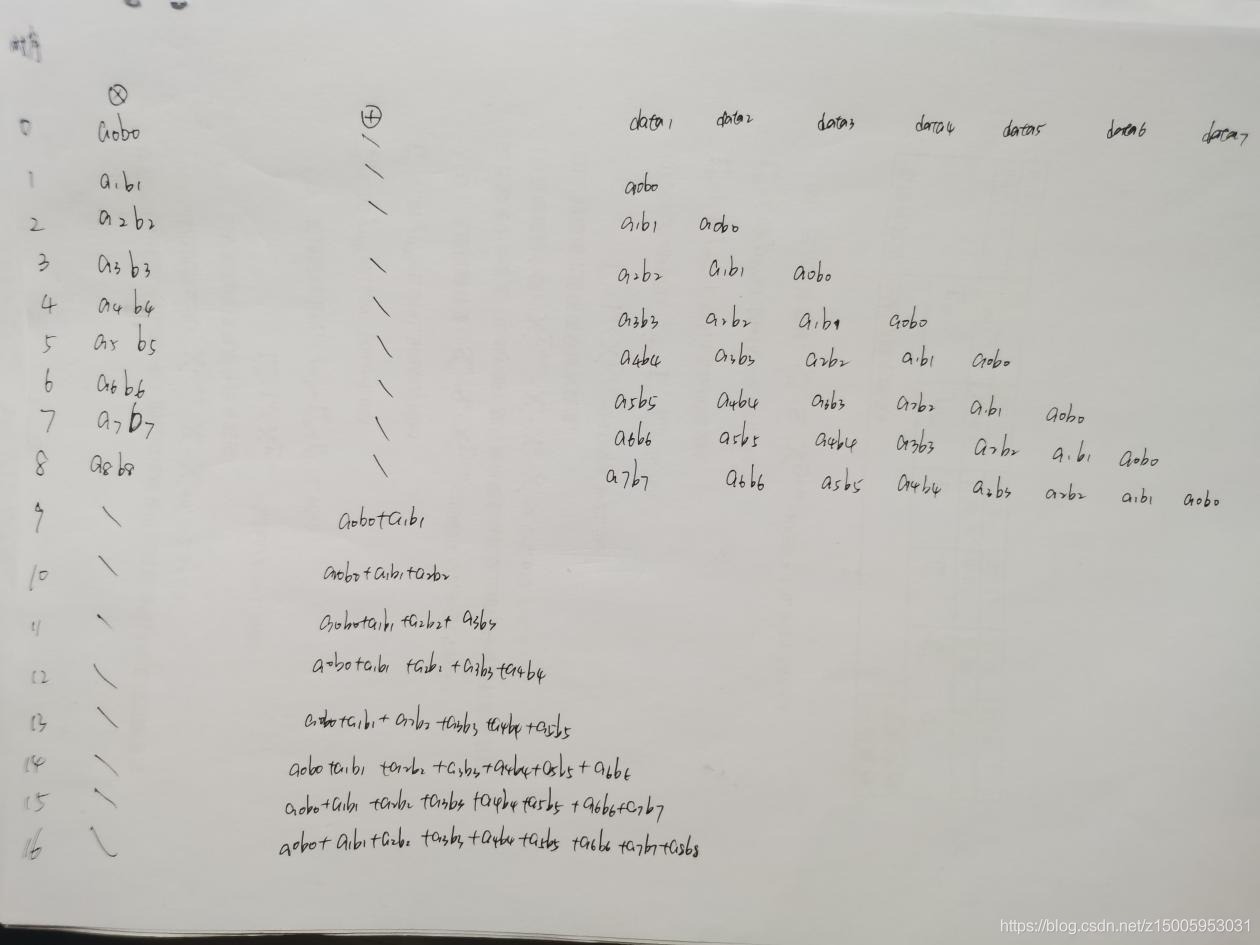 时序
⊗ ⊕
0 a0b0 \ data1 data2 data3 data4 data5 data6 data7
1 a1b1 \ a0b0
2 a2b2 \ a1b1 a0b0
3 a3b3 \ a2b2 a1b1 a0b0
4 a4b4 \ a3b3 a2b2 a1b1 a0b0
5 a5b5 \ a4b4 a3b3 a2b2 a1b1 a0b0
6 a6b6 \ a5b5 a4b4 a3b3 a2b2 a1b1 a0b0
7 a7b7 \ a6b6 a5b5 a4b4 a3b3 a2b2 a1b1 a0b0
8 a8b8 \ a7b7 a6b6 a5b5 a4b4 a3b3 a2b2 a1b1 a0b0
9 \ a0b0+a1b1
10 \ a0b0+a1b1+a2b2
11 \ a0b0+a1b1+a2b2+a3b3
12 \ a0b0+a1b1+a2b2+a3b3+a4b4
13 \ a0b0+a1b1+a2b2+a3b3+a4b4+a5b5
14 \ a0b0+a1b1+a2b2+a3b3+a4b4+a5b5+a6b6
15 \ a0b0+a1b1+a2b2+a3b3+a4b4+a5b5+a6b6+a7b7
16 \ a0b0+a1b1+a2b2+a3b3+a4b4+a5b5+a6b6+a7b7+a8b8
https://blog.csdn.net/z15005953031